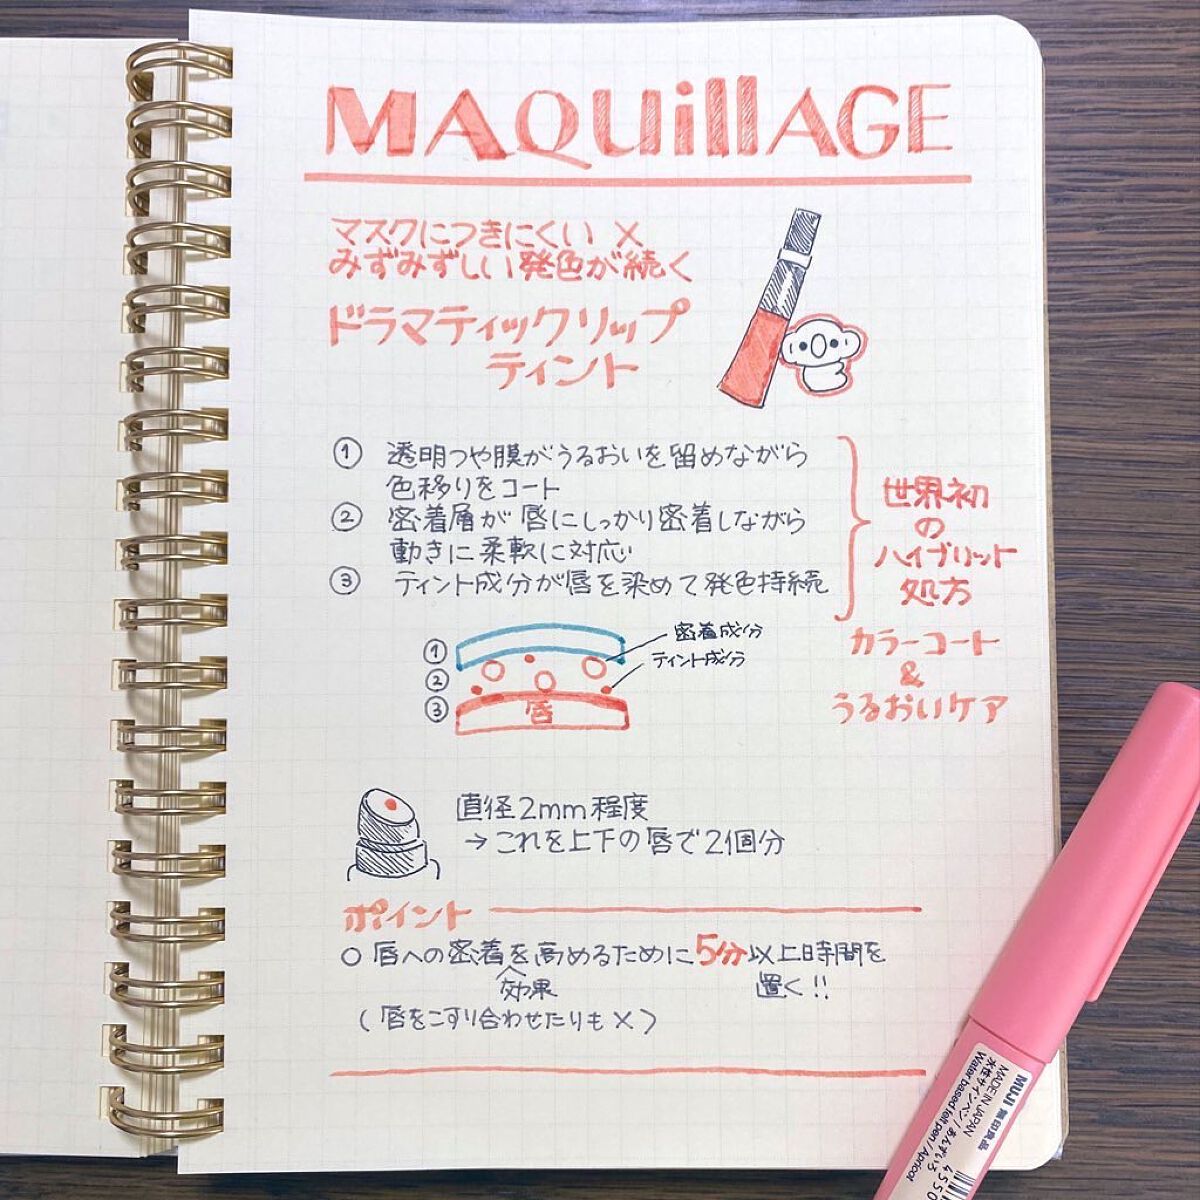 MAQUillAGE
マスクにつきにくい ×
みずみずしい発色が続く
ドラマティックリップ
ティント
① 透明つや膜がうるおいを留めながら
色移りをコート
② 密着層が唇にしっかり密着しながら
動きに柔軟に対応
③ ティント成分が唇を染めて発色持続
世界初
の
ハイブリット
処方
カラーコート
&
うるおいケア
①
②
③
密着成分
ティント成分
唇
直径2mm程度
→これを上下の唇で2個分
ポイント
○ 唇への密着を高めるために5分以上時間を
効果
置く!!
(唇をこすり合わせたりも×)
MUJI 無印良品
MADE IN JAPAN
水性サインペン/あんずいろ
Water based felt pen/Apricot
4550